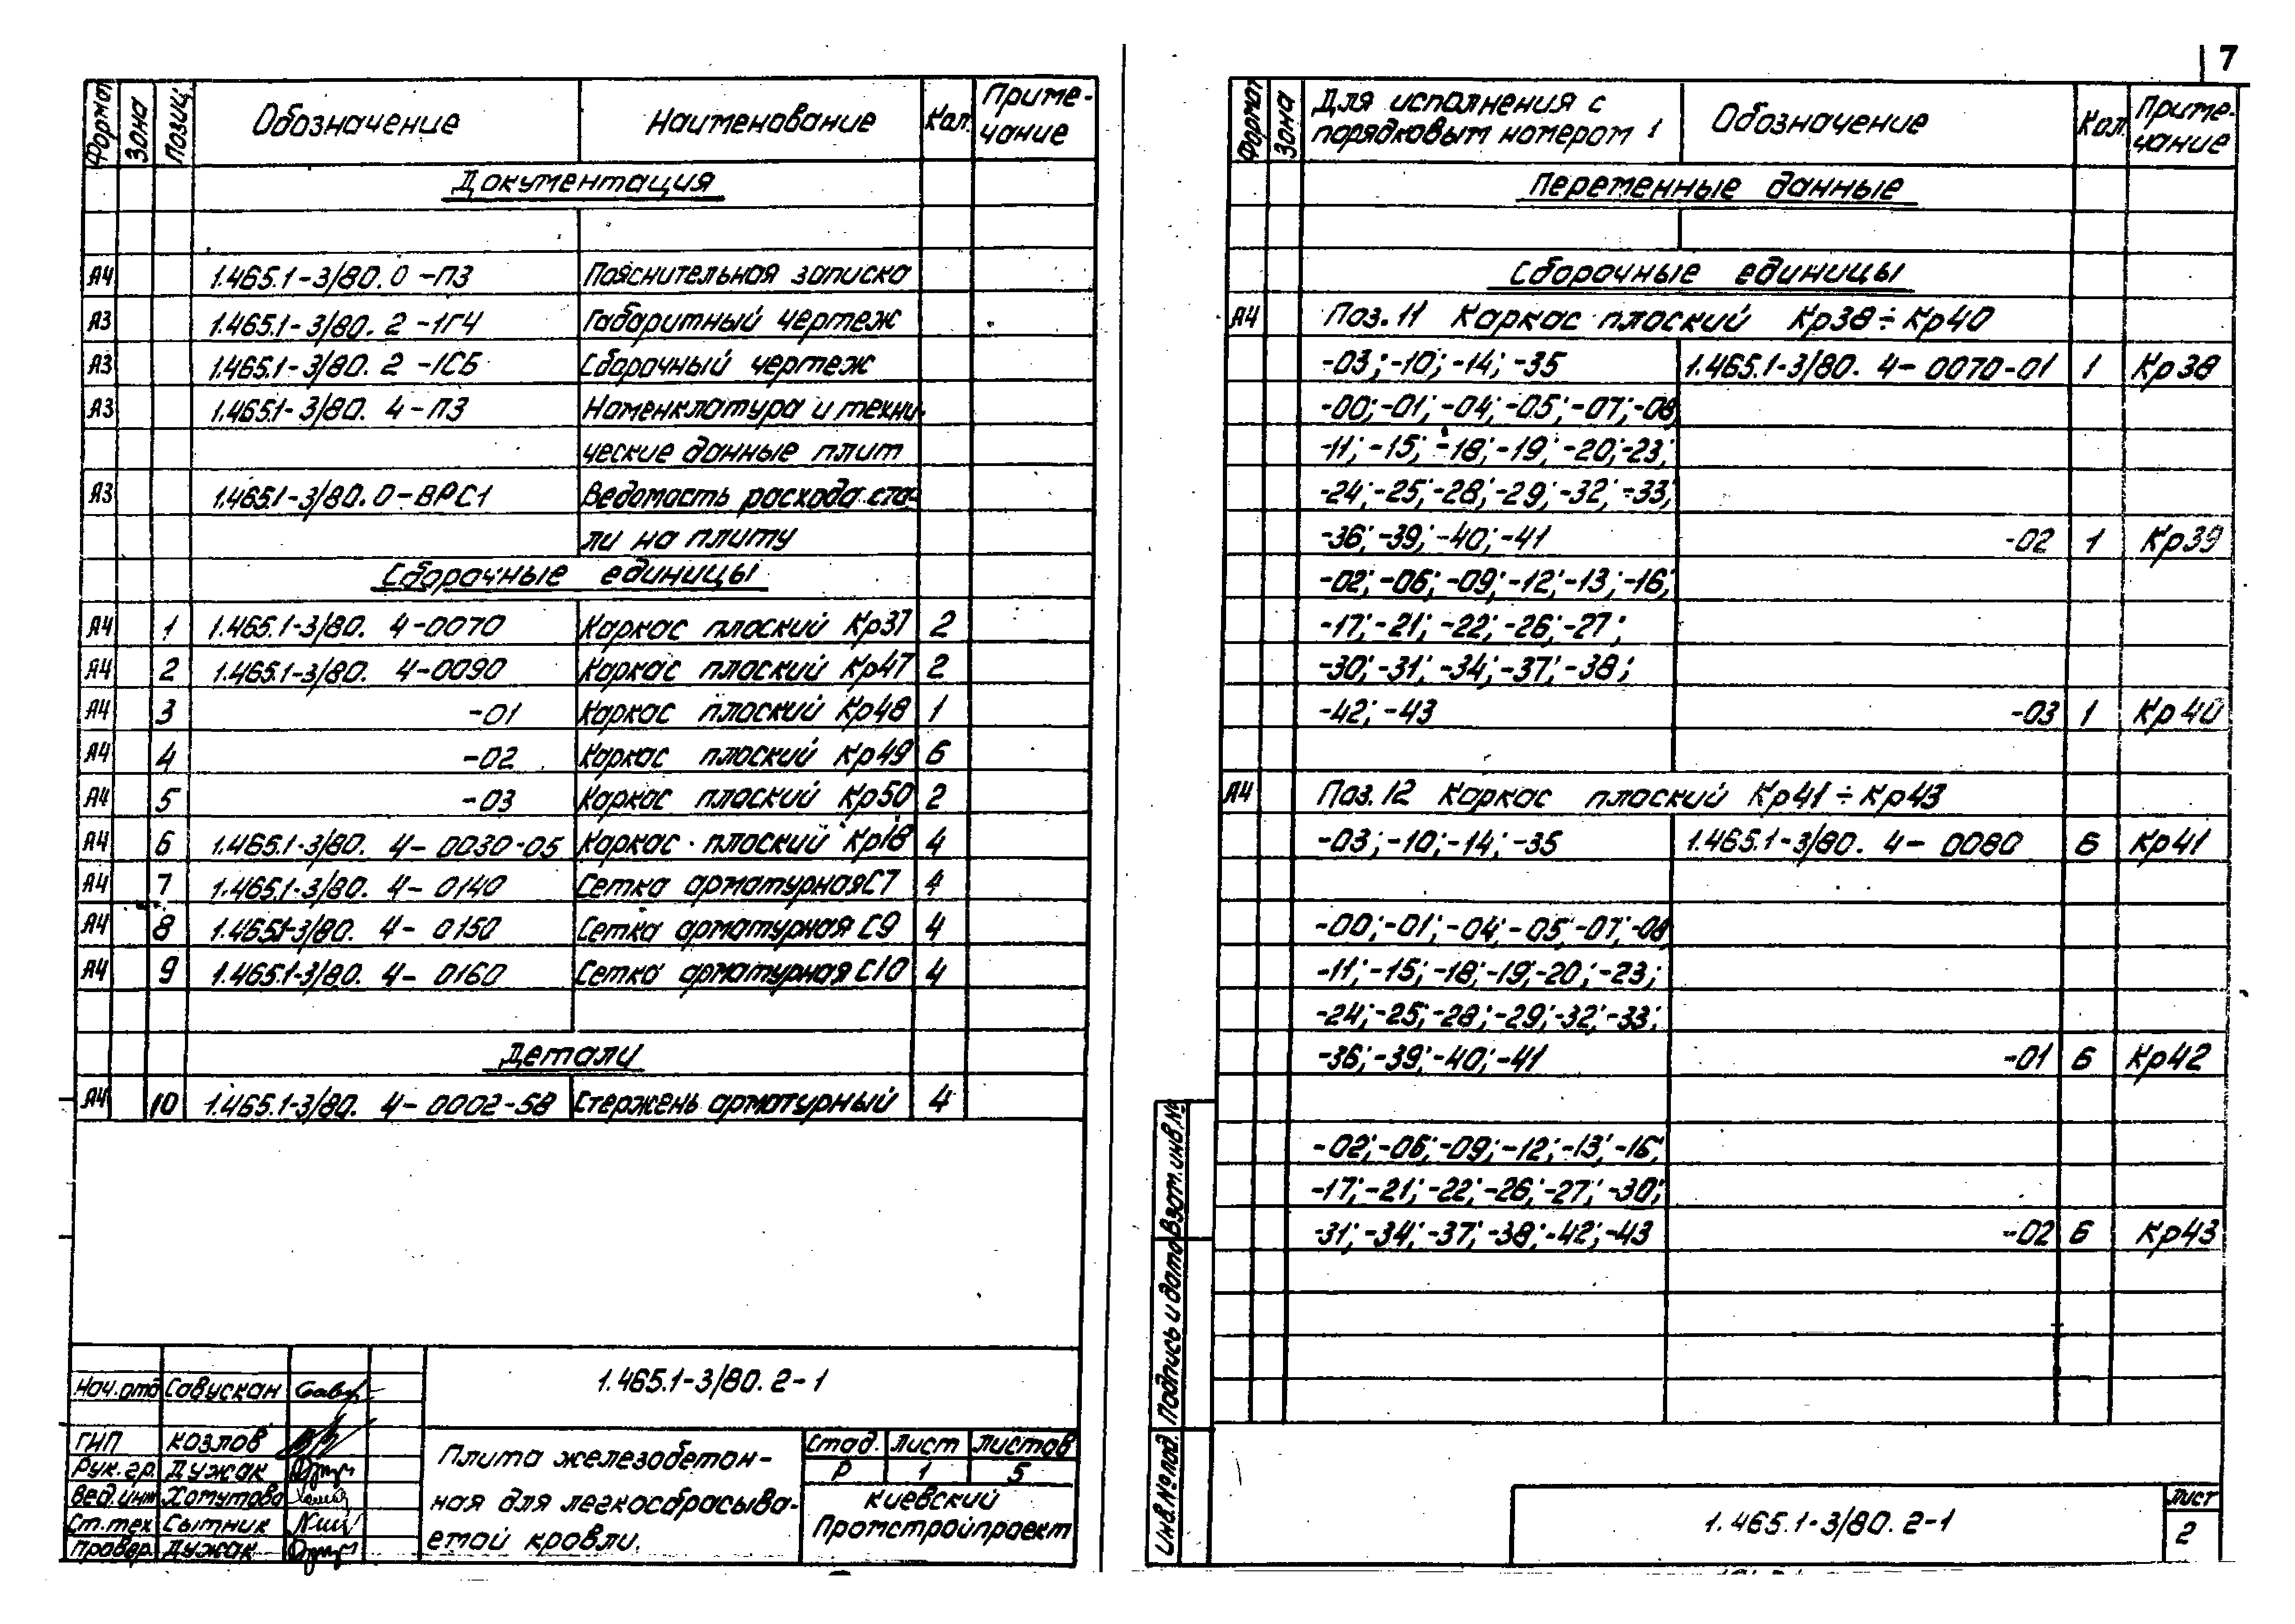 7
Формат Зона Позиц. Обозначение Наименование Кол. Приме-
чание
Документация
А4 1.465.1-3/80. 0 -ПЗ Пояснительная записка
А3 1.465.1-3/80. 2 -1ГЧ Габаритный чертеж
А3 1.465.1-3/80. 2 -1СБ Сборочный чертеж
А3 1.465.1-3/80. 4-ПЗ Номенклатура и техни-
ческие данные плит
А3 1.465.1-3/80. 0-ВРС1 Ведомость расхода ста-
ли на плиту
Сборочные единицы
А4 1 1.465.1-3/80. 4-0070 Каркас плоский Кр37 2
А4 2 1.465.1-3/80. 4-0090 Каркас плоский Кр47 2
А4 3 -01 Каркас плоский Кр48 1
А4 4 -02 Каркас плоский Кр49 6
А4 5 -03 Каркас плоский Кр50 2
А4 6 1.465.1-3/80. 4-0030-05 Каркас плоский Кр18 4
А4 7 1.465.1-3/80. 4- 0140 Сетка арматурная С7 4
А4 8 1.465.1-3/80. 4- 0150 Сетка арматурная С9 4
А4 9 1.465.1-3/80. 4- 0160 Сетка арматурная С10 4
Детали
А4 10 1.465.1-3/80. 4-0002-58 Стержень арматурный 4
Нач.отд Савускан
ГИП Козлов
Рук.гр. Дужак
Вед.инж Хомутова
Ст.тех Сытник
Провер. Дужак
1.465.1-3/80. 2-1
Плита железобетон-
ная для легкосбрасыва-
емой кровли.
Стад. Лист Листов
Р 1 5
Киевский
Промстройпроект
Формат Зона Для исполнения с
порядковым номером 1 Обозначение Кол. Приме-
чание
Переменные данные
Сборочные единицы
А4 Поз. 11 Каркас плоский Кр38÷Кр40
-03; -10; -14; -35 1.465.1-3/80. 4- 0070-01 1 Кр38
-00; -01; -04; -05; -07; -08;
-11; -15; -18; -19; -20; -23;
-24; -25; -28; -29; -32; -33;
-36; -39; -40; -41 -02 1 Кр39
-02; -06; -09; -12; -13; -16;
-17; -21; -22; -26; -27;
-30; -31; -34; -37; -38;
-42; -43 -03 1 Кр40
А4 Поз. 12 Каркас плоский Кр41÷Кр43
-03; -10; -14; -35 1.465.1-3/80. 4- 0080 6 Кр41
-00; -01; -04; -05; -07; -08
-11; -15; -18; -19; -20; -23;
-24; -25; -28; -29; -32; -33;
-36; -39; -40; -41 -01 6 Кр42
-02; -06; -09; -12; -13; -16;
-17; -21; -22; -26; -27; -30;
-31; -34; -37; -38; -42; -43 -02 6 Кр43
Инв.№ под. Подпись и дата Взам.инв.№
1.465.1-3/80. 2-1
Лист
2